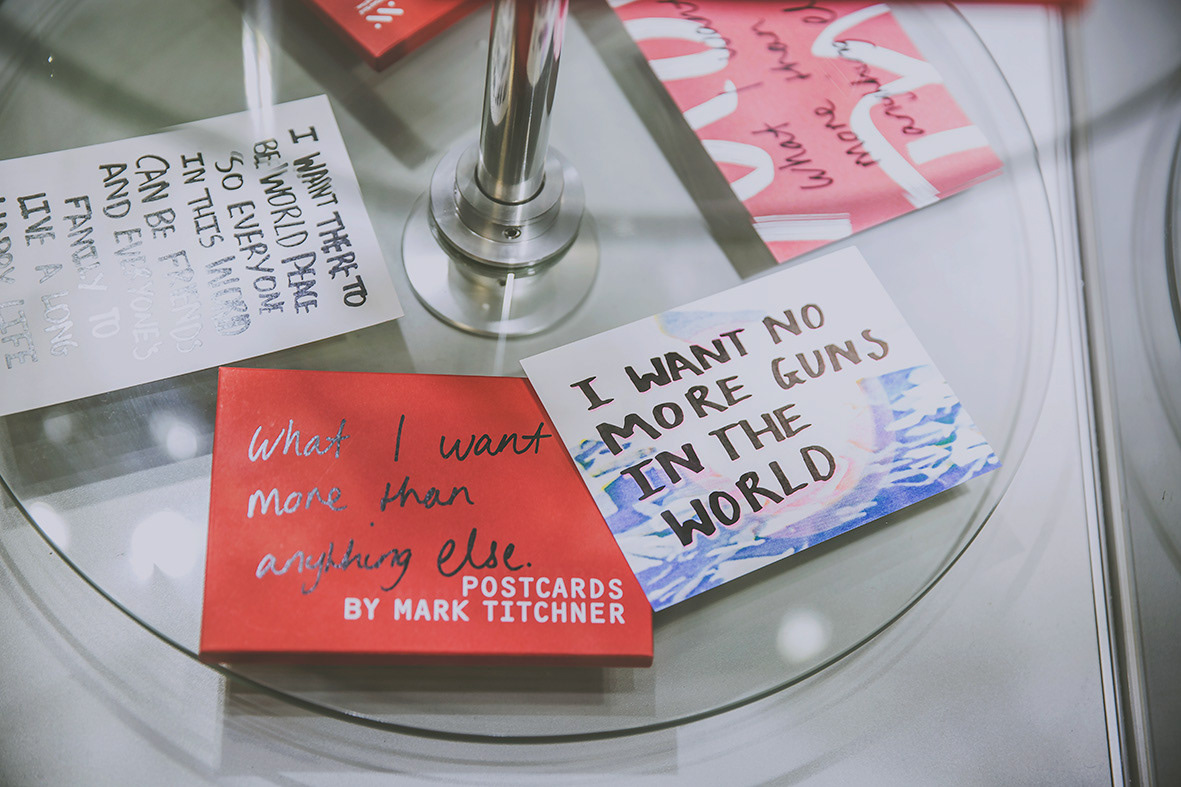 I WANT THERE TO
BE WORLD PEACE
SO EVERYONE
IN THIS WORLD
CAN BE FRIENDS
AND EVERYONE'S
FAMILY TO
LIVE A LONG
HAPPY LIFE
What I want
more than
anything else.
POSTCARDS
BY MARK TITCHNER
I WANT NO
MORE GUNS
IN THE
WORLD
What I want
more than
anything el